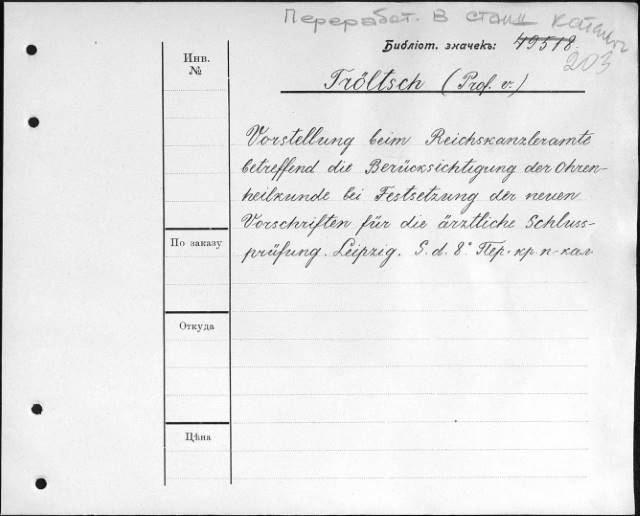 Переработ. в станц каталог
Библіот. значекъ: 49518.
203
Инв.
№
Tröltsch (Prof. v.)
Vorstellung beim Reichskanzleramte
betreffend die Berücksichtigung der Ohren-
heilkunde bei Festsetzung der neuen
Vorschriften für die ärztliche Schluss-
prüfung. Leipzig. S. d. 8° Пер. кр. п-кал
По заказу
Откуда
Цѣна